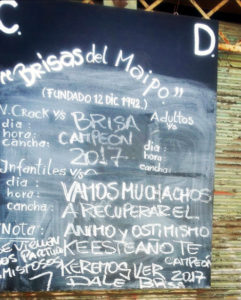 C. D.
"BRISAS del Maipo."
(FUNDADO 12 DIC 1992.)
V. Crack v/s BRISA Adultos v/s
dia : CAMPEON dia :
hora : hora :
cancha : 2017 cancha :
Infantiles v/s
dia : VAMOS MUCHACHOS
hora :
cancha : A RECUPERAR EL
Nota : ANIMO y OSTIMISMO
KE ESTE ANO TE
KEREMOS VER CAMPEON
DALE 2017